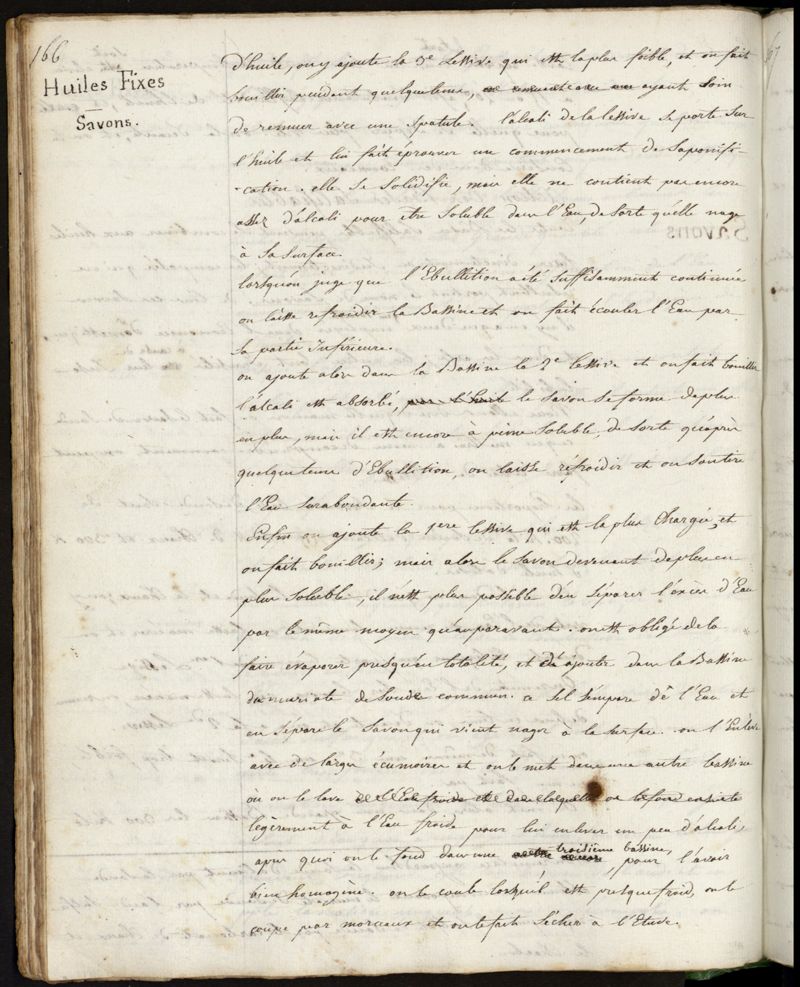 166
Huiles Fixes
Savons.
d'huile, on y ajoute la 3e Lessive qui est la plus foible, et on fait
bouillir pendant quelque tems, ayant soin
de remuer avec une spatule. l'alcali de la lessive se porte sur
l'huile et lui fait éprouver un commencement de Saponifi-
-cation. elle se Solidifie, mais elle ne contient pas encore
assez d'alcali pour etre Soluble dans l'Eau, de sorte qu'elle nage
à Sa surface.
lorsqu'on juge que l'Ebullition a été suffisamment continuée
on laisse refroidir la Bassine et on fait écouler l'Eau par
Sa partie Inférieure.
on ajoute alors dans la Bassine la 2e lessive et on fait bouillir
l'alcali est absorbé, le Savon se forme de plus
en plus, mais il est encore à peine Soluble, de sorte qu'après
quelque tems d'Ebullition, on laisse réfroidir et on soutire
l'Eau surabondante.
Enfin on ajoute la 1ere lessive qui est le plus Chargée, et
on fait bouillir; mais alors le Savon devenant de plus en
plus Soluble, il n'est plus possible d'en Séparer l'excès d'Eau
par le même moyen qu'auparavant. on est obligé de la
faire évaporer presqu'en totalité, et d'ajouter dans la Bassine
du muriate de Soude commun. ce Sel s'empare de l'Eau et
en Sépare le Savon qui vient nager à la surface. on l'Enleve
avec de larges écumoires et on le met dans une autre bassine
où on le lave
legèrement à l'Eau froide pour lui enlever un peu d'alcali,
apres quoi on le fond dans une troisième bassine, pour l'avoir
bien homogène. on le coule lorsqu'il est presque froid, on le
coupe par morceaux et on le fait Sécher à l'Etuve.